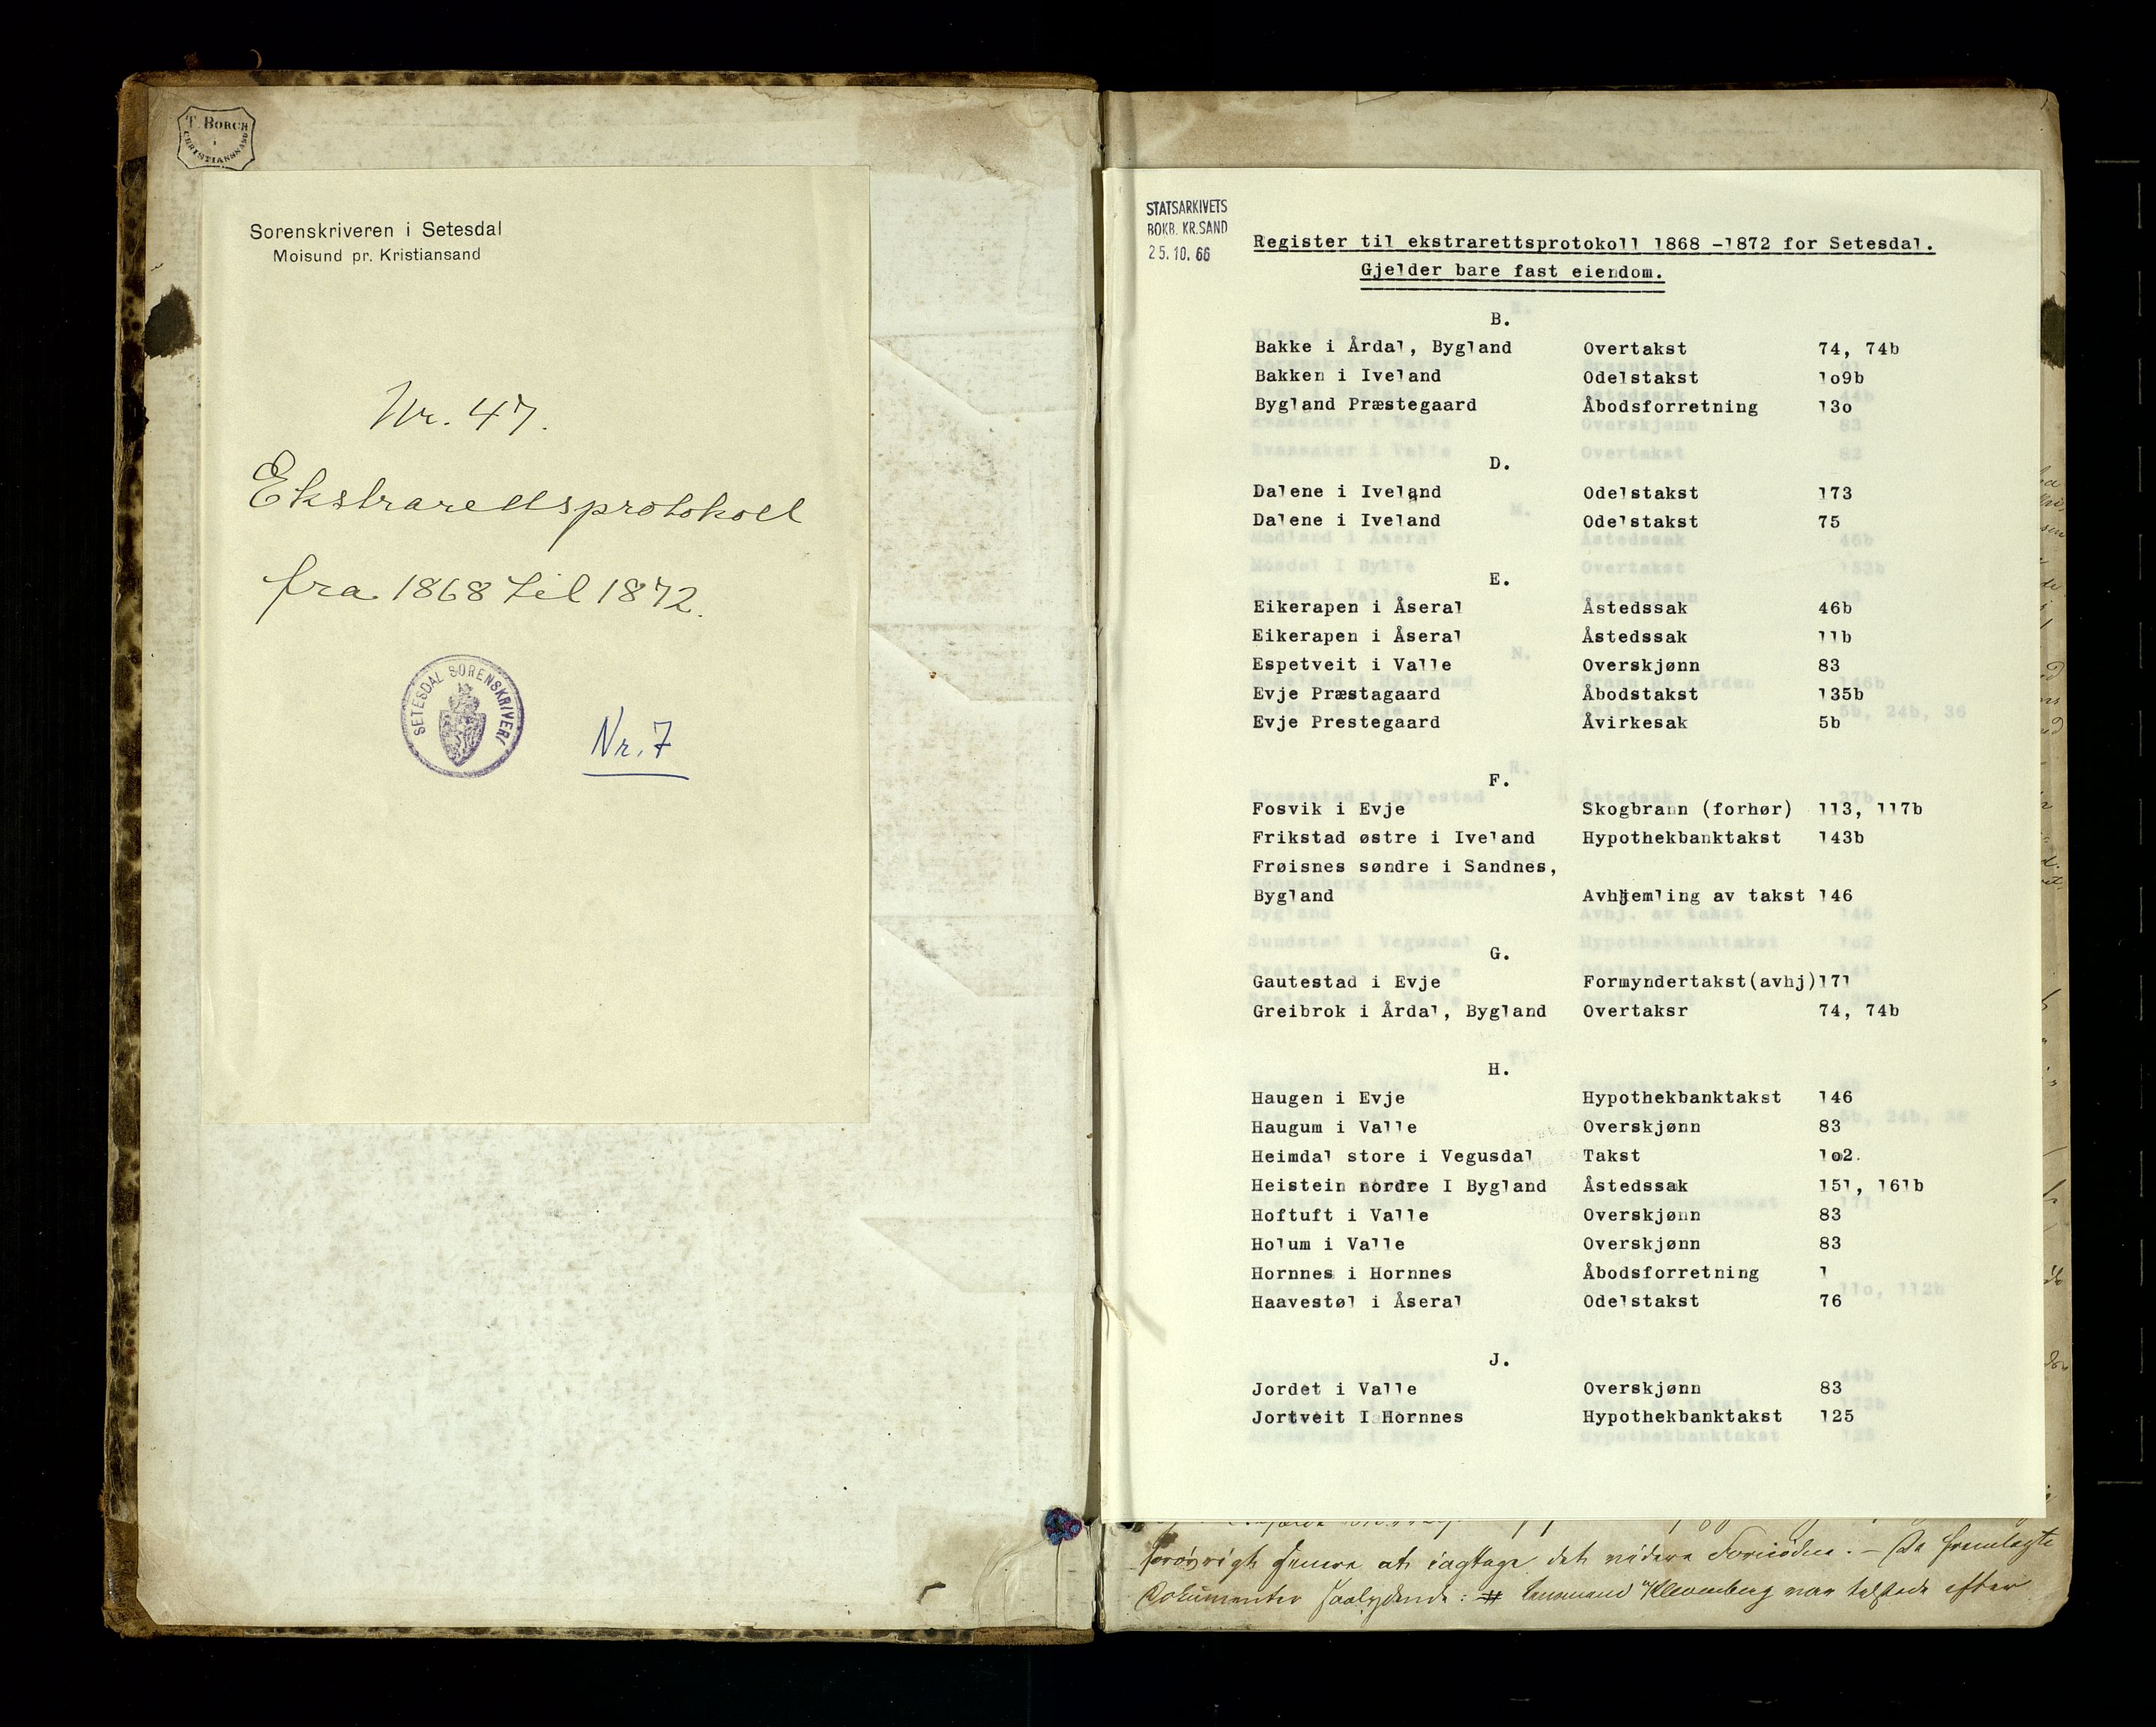 T. BORCH
i
CHRISTIANSSAND
Sorenskriveren i Setesdal
Moisund pr. Kristiansand
Nr. 47.
Ekstrarettsprotokoll
fra 1868 til 1872.
SETESDAL SORENSKRIVERI
Nr. 7
STATSARKIVETS
BOKB. KR.SAND
25.10.66
Register til ekstrarettsprotokoll 1868 -1872 for Setesdal.
Gjelder bare fast eiendom.
B.
Bakke i Årdal, Bygland Overtakst 74, 74b
Bakken i Iveland Odelstakst 1o9b
Bygland Præstegaard Åbodsforretning 13o
D.
Dalene i Iveland Odelstakst 173
Dalene i Iveland Odelstakst 75
E.
Eikerapen i Åseral Åstedssak 46b
Eikerapen i Åseral Åstedssak 11b
Espetveit i Valle Overskjønn 83
Evje Præstagaard Åbodstakst 135b
Evje Prestegaard Åvirkesak 5b
F.
Fosvik i Evje Skogbrann (forhør) 113, 117b
Frikstad østre i Iveland Hypothekbanktakst 143b
Frøisnes søndre i Sandnes,
Bygland Avhjemling av takst 146
G.
Gautestad i Evje Formyndertakst(avhj)171
Greibrok i Årdal, Bygland Overtaksr 74, 74b
H.
Haugen i Evje Hypothekbanktakst 146
Haugum i Valle Overskjønn 83
Heimdal store i Vegusdal Takst 1o2.
Heistein nordre I Bygland Åstedssak 151, 161b
Hoftuft i Valle Overskjønn 83
Holum i Valle Overskjønn 83
Hornnes i Hornnes Åbodsforretning 1
Haavestøl i Åseral Odelstakst 76
J.
Jordet i Valle Overskjønn 83
Jortveit I Hornnes Hypothekbanktakst 125
forøvrigt at iagttage det videre . – De fremlagte
Dokumenter saalydende: Lensmand Klevenberg var tilstede efter